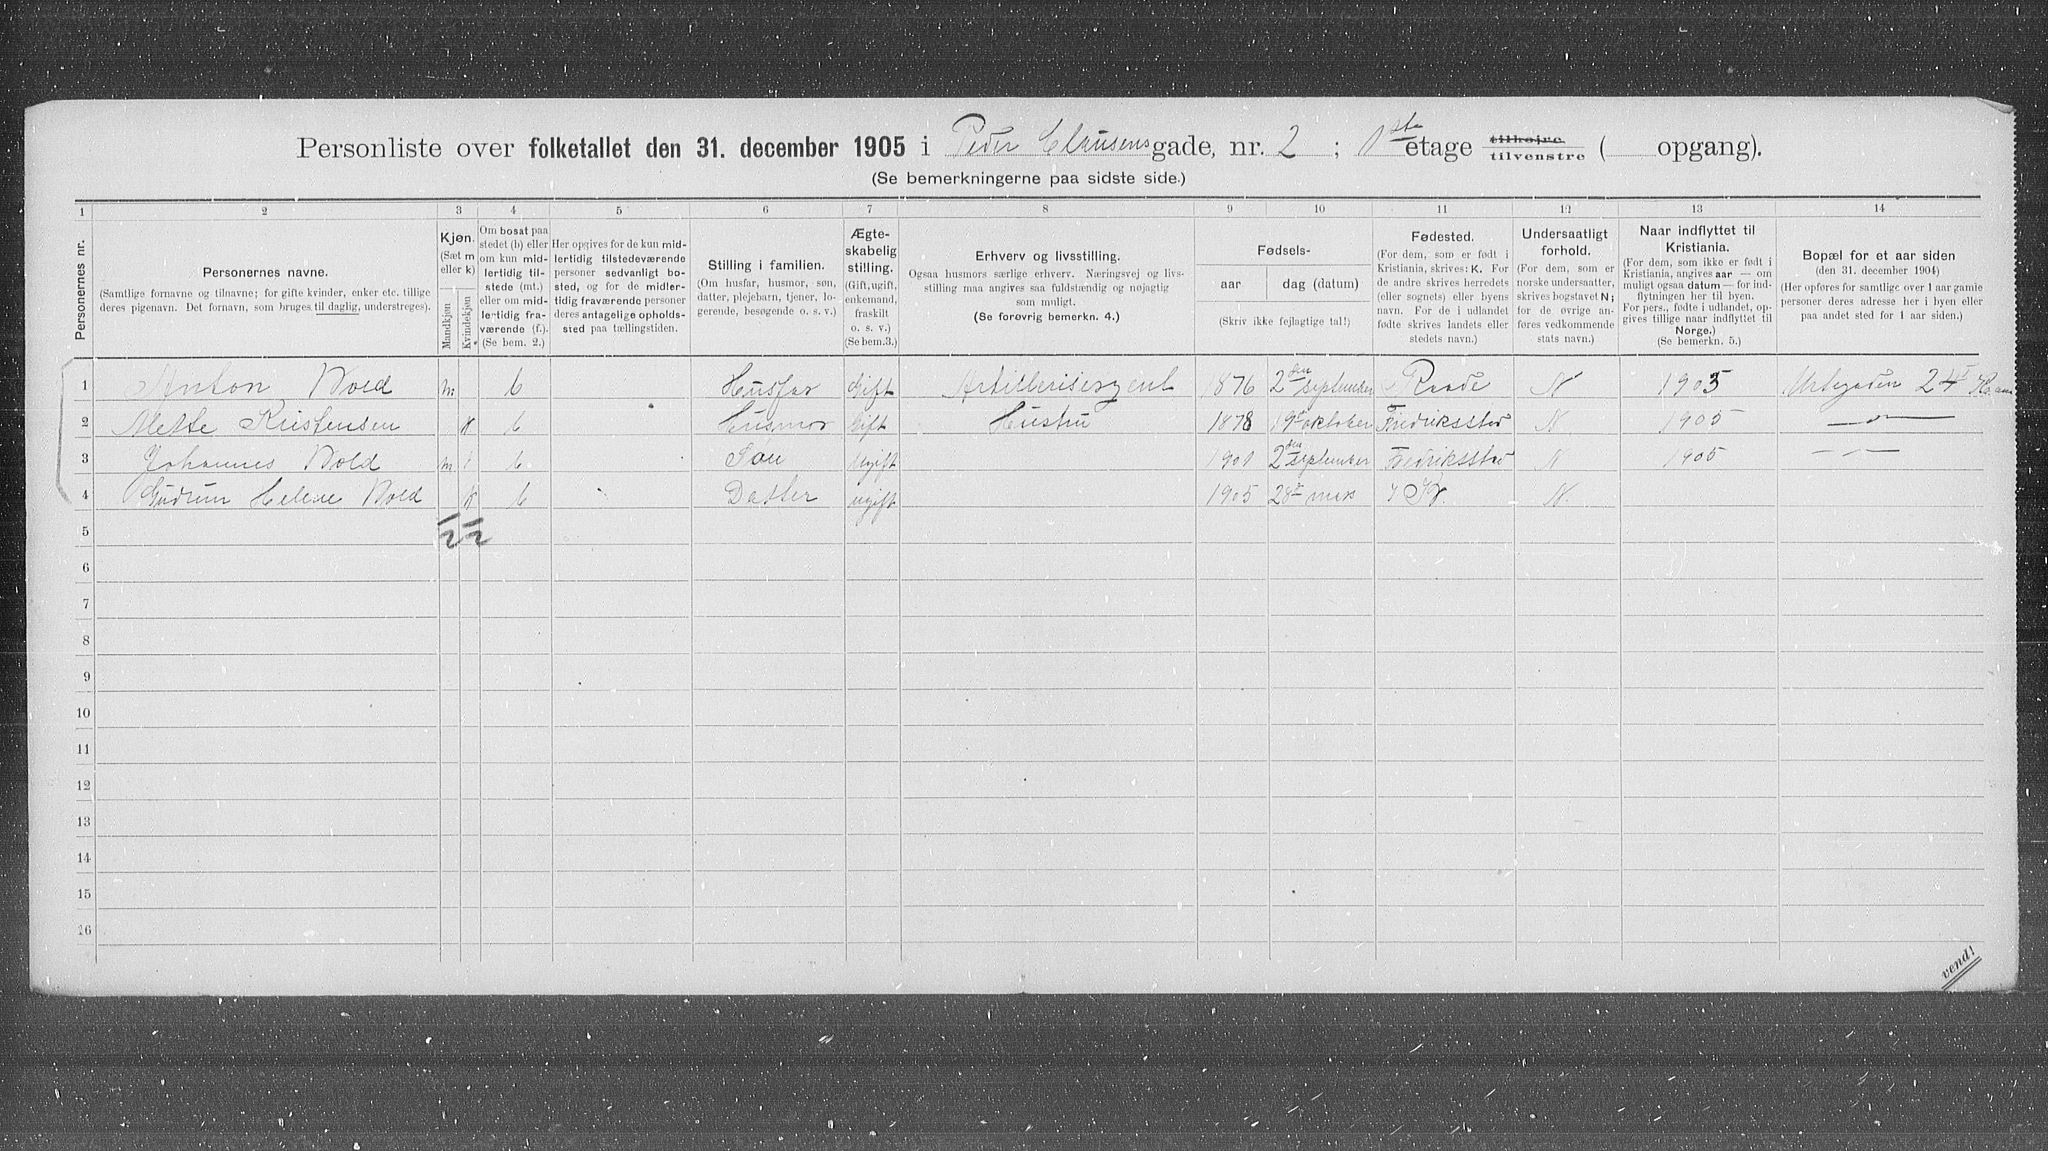 Personliste over folketallet den 31. december 1905 i Peder Clausensgade, nr. 2; 1ste etage tilhøire tilvenstre ( opgang).
(Se bemerkningerne paa sidste side.)
1 2 3 4 5 6 7 8 9 10 11 12 13 14
Personernes nr.
Personernes navne.
(Samtlige fornavne og tilnavne; for gifte kvinder, enker etc. tillige
deres pigenavn. Det fornavn, som bruges til daglig, understreges).
Kjøn.
(Sæt m
eller k)
Mandkjøn
Kvindekjøn
Om bosat paa
stedet (b) eller
om kun mid-
lertidig til-
stede (mt.)
eller om mid-
lertidig fra-
værende (f.).
(Se bem. 2.)
Her opgives for de kun mid-
lertidig tilstedeværende
personer sedvanligt bo-
sted, og for de midler-
tidig fraværende personer
deres antagelige opholds-
sted paa tællingstiden.
Stilling i familien.
(Om husfar, husmor, søn,
datter, plejebarn, tjener, lo-
gerende, besøgende o. s. v.)
Ægte-
skabelig
stilling.
(Gift, ugift,
enkemand,
fraskilt
o. s. v.)
(Se bem.3.)
Erhverv og livsstilling.
Ogsaa husmors særlige erhverv. Næringsvej og livs-
stilling maa angives saa fuldstændig og nøjagtig
som muligt.
(Se forøvrig bemerkn. 4.)
Fødsels-
aar dag (datum)
(Skriv ikke fejlagtige tal!)
Fødested.
(For dem, som er født i
Kristiania, skrives: K. For
de andre skrives herredets
(eller sognets) eller byens
navn. For de i udlandet
fødte skrives landets eller
stedets navn.)
Undersaatligt
forhold.
(For dem, som er
norske undersaatter,
skrives bogstavet N;
for de øvrige an-
føres vedkommende
stats navn.)
Naar indflyttet til
Kristiania.
(For dem, som ikke er født i
Kristiania, angives aar — om
muligt ogsaa datum — for ind-
flytningen her til byen.
For pers., fødte i udlandet, op-
gives tillige naar indflyttet til
Norge.)
(Se bemerkn. 5.)
Bopæl for et aar siden
(den 31. december 1904)
(Her opføres for samtlige over 1 aar gamle
personer deres adresse her i byen eller
paa andet sted for 1 aar siden.)
1 Anton Wold m b Husfar Gift Artillerisergent 1876 2den september Raade N 1905 24
2 Mette Kristensen k b Husmor Gift Hustru 1878 19de oktober Fredriksstad N 1905 — " —
3 Johannes Wold m b Søn Ugift 1901 2den september Fredriksstad N 1905 — " —
4 Gudrun Helene Wold k b Datter ugift 1905 28de N
5
6
7
8
9
10
11
12
13
14
15
16
vend!